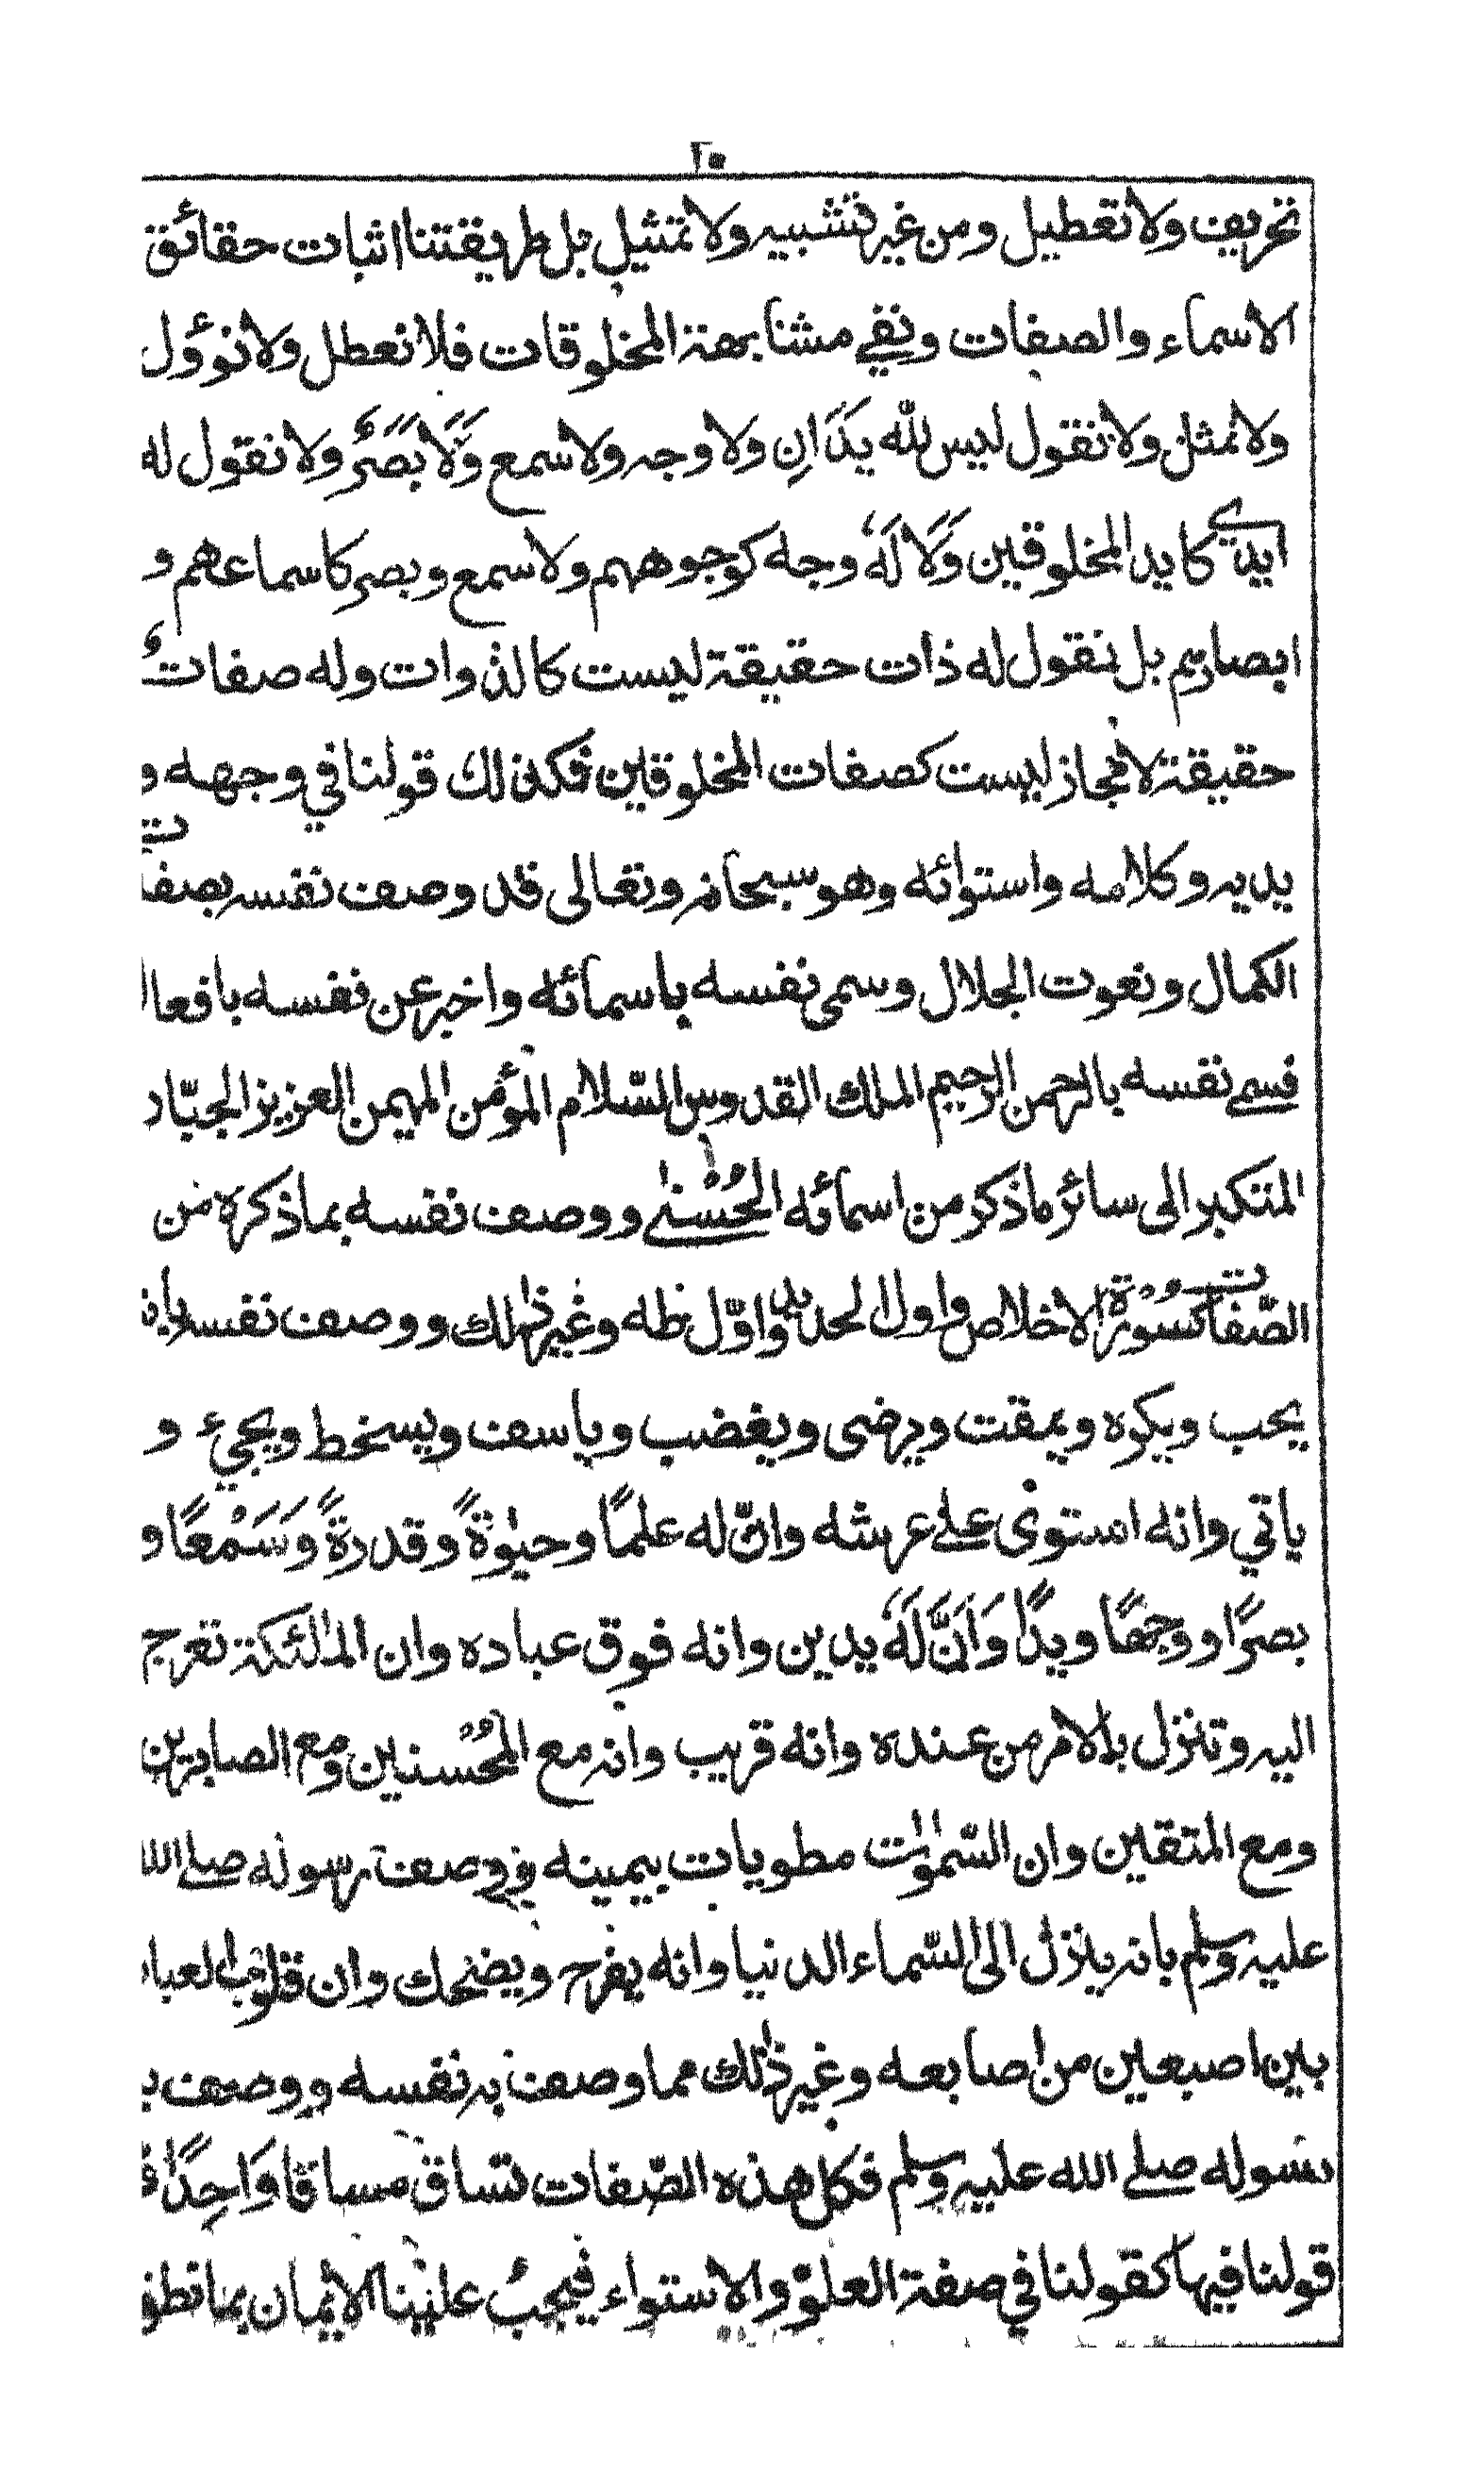 ٢٠
تحريف ولا تعطيل ومن غير تشبيه ولا تمثيل بل طريقتنا اثبات حقائق
الاسماء والصفات ونفي مشابهة المخلوقات فلا نعطل ولا نوؤل
ولا نمثل ولا نقول ليس لله يَدَانِ ولا وجه ولا سمع وَلَا بَصَرٌ ولا نقول له
ايدي كايد المخلوقين وَلَا لَهُ وجه كوجوههم ولا سمع وبصر كاسماعهم و
ابصارهم بل نقول له ذات حقيقة ليست كالذوات وله صفاتٌ
حقيقة لا مجاز ليست كصفات المخلوقين فكذلك قولنا في وجهه و
يديه وكلامه واستوائه وهو سبحانه وتعالى قد وصف نفسه بصفات
الكمال ونعوت الجلال وسمى نفسه باسمائه واخبر عن نفسه بافعا
فسمى نفسه بالرحمن الرحيم الملك القدوس السّلام المؤمن المهيمن العزيز الجبّار
المتكبر الى سائر ماذكر من اسمائه الحُسْنى ووصف نفسه بماذكره من
الصّفات كسُوْرة الاخلاص واول الحديد واوّل طه وغير ذٰلك ووصف نفسه بان
يحب ويكره ويمقت ويرضى ويغضب وياسف ويسخط ويجيء و
ياتي وانه استوى على عرشه وانّ له علمًا وحيٰوةً وقدرةً وَسَمْعًا و
بصرًا ووجهًا ويدًا وَاَنَّ لَهُ يدين وانه فوق عباده وان الملٰئكة تعرج
اليه وتنزل بالامر من عنده وانه قريب وانه مع المُحْسنين ومع الصابرين
ومع المتقين وان السّمٰوٰت مطويات بيمينه ووصف رسوله صلى الله
عليه وسلم بانه ينزل الى السّماء الدنيا وانه يفرح ويضحك وان قلوب العباد
بين اصبعين من اصابعه وغير ذٰلك مما وصف به نفسه ووصف به
رسوله صلى الله عليه وسلم فكل هذه الصّفات تساق مساقا وَاحِدًا
قولنا فيها كقولنا في صفة العلوّ والاستواء فيجبُ علينا الايمان بما نطق